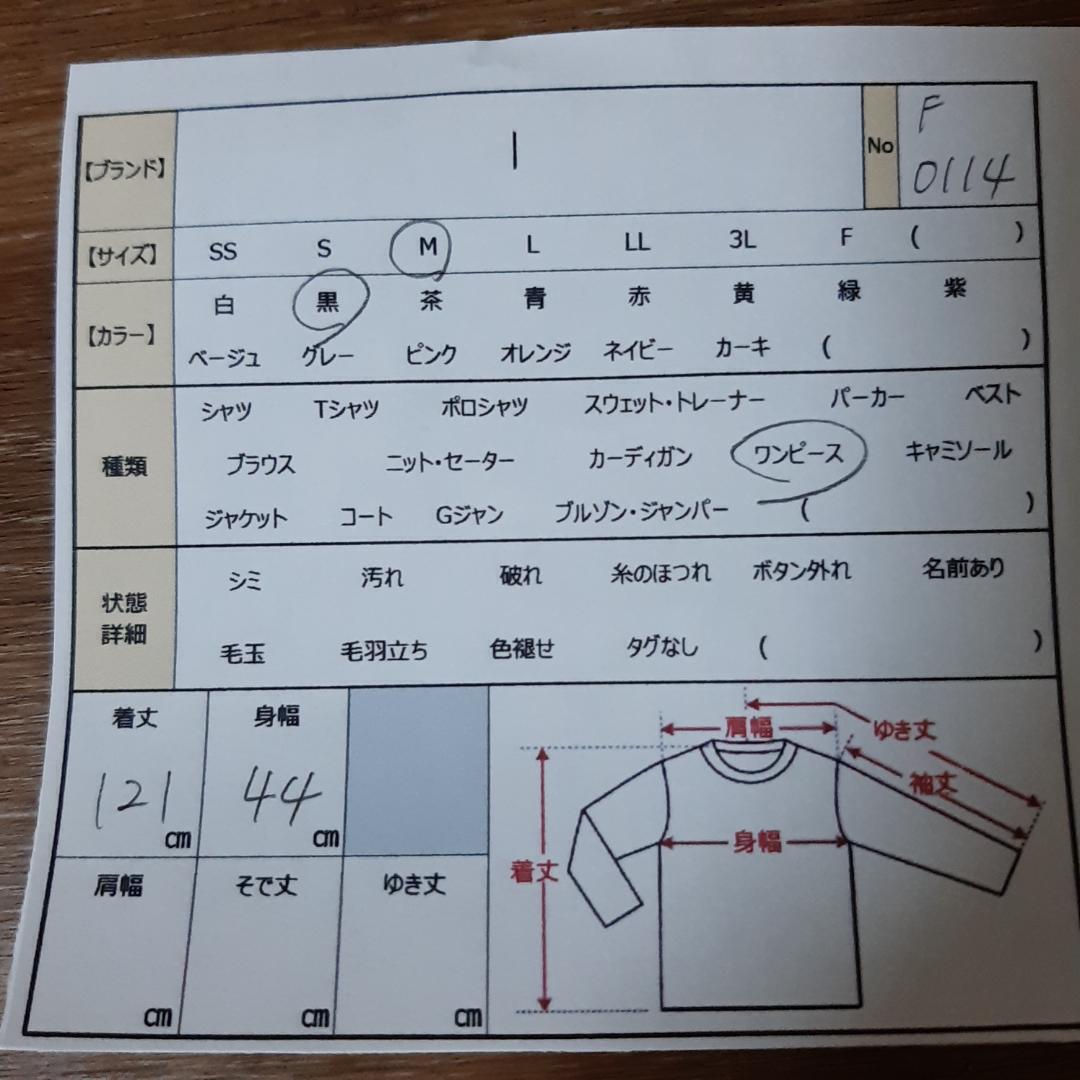 【ブランド】 | No F
0114
【サイズ】 SS S M L LL 3L F ( )
【カラー】 白 黒 茶 青 赤 黄 緑 紫
ベージュ グレー ピンク オレンジ ネイビー カーキ ( )
種類 シャツ Tシャツ ポロシャツ スウェット・トレーナー パーカー ベスト
ブラウス ニット・セーター カーディガン ワンピース キャミソール
ジャケット コート Gジャン ブルゾン・ジャンパー ( )
状態
詳細
シミ 汚れ 破れ 糸のほつれ ボタン外れ 名前あり
毛玉 毛羽立ち 色褪せ タグなし ( )
着丈 身幅
121 cm 44 cm
肩幅 そで丈 ゆき丈
cm cm cm
肩幅 ゆき丈
袖丈
身幅
着丈